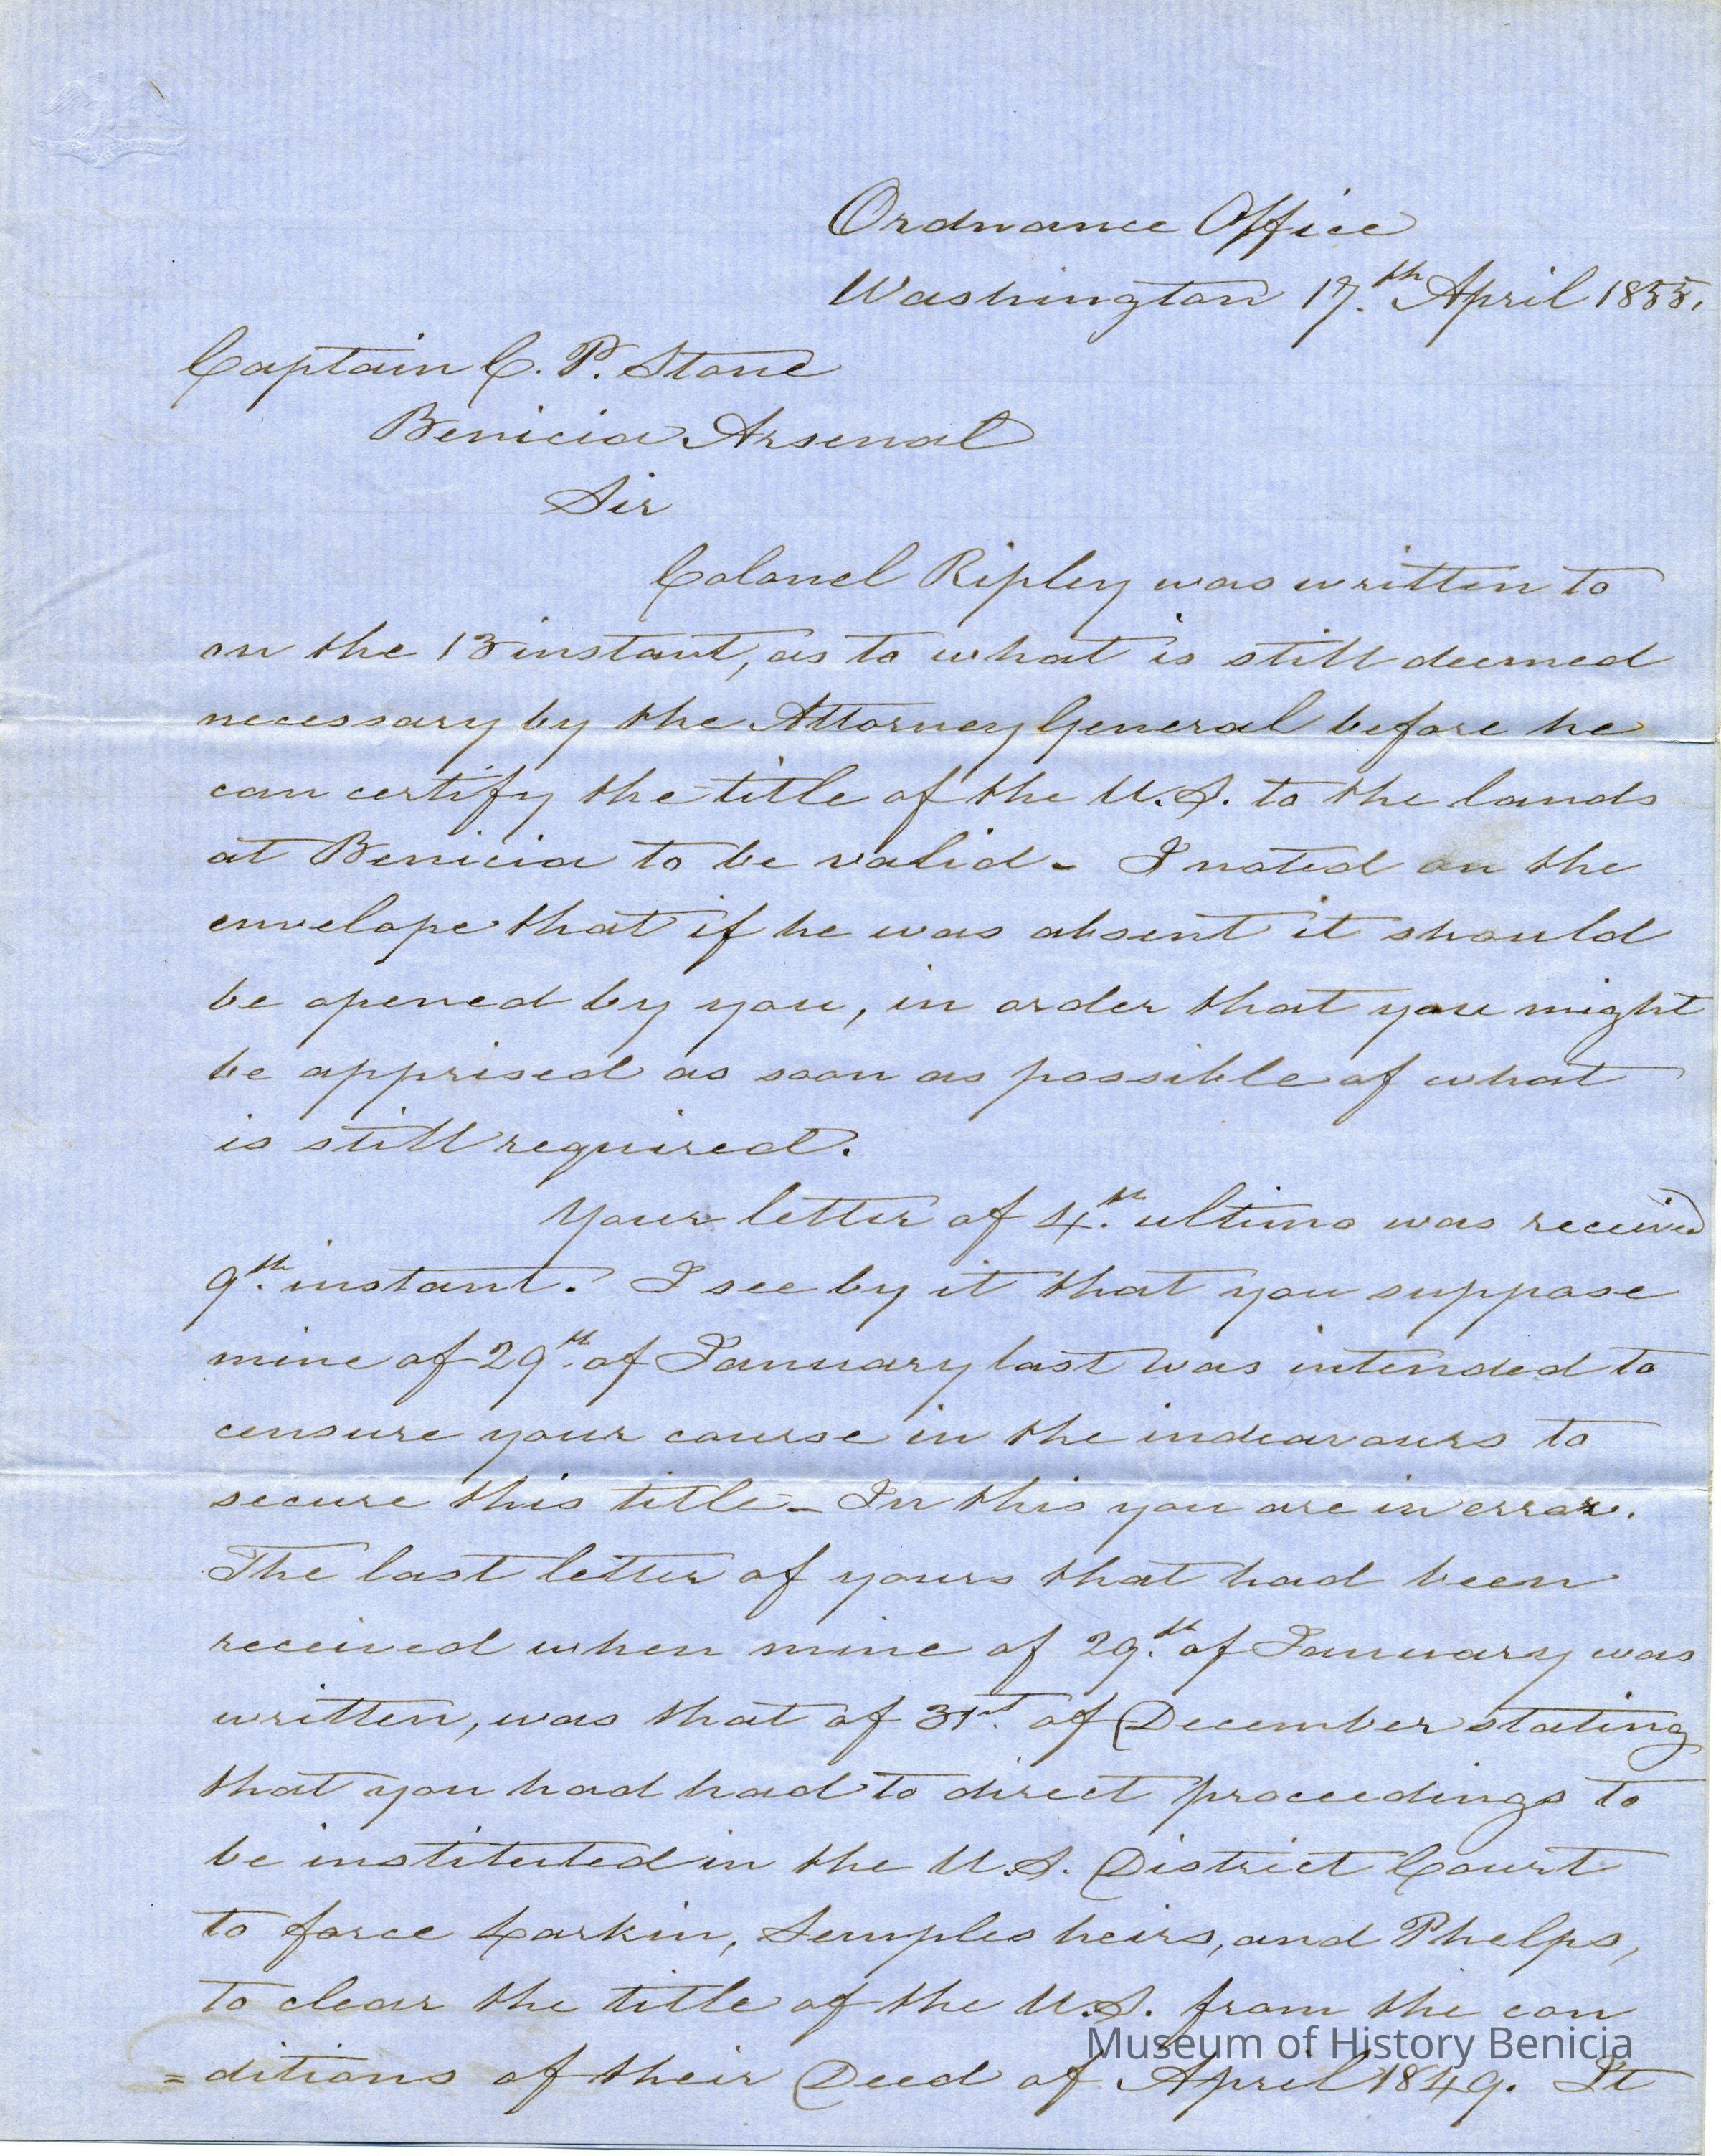 Ordnance Office
Washington 17.th April 1855.
Captain C. P. Stone
Benicia Arsenal
Sir
Colonel Ripley was written to
on the 13 instant, as to what is still deemed
necessary by the Attorney General before he
can certify the title of the U.S. to the lands
at Benicia to be valid - I noted on the
envelope that if he was absent it should
be opened by you, in order that you might
be apprised as soon as possible of what
is still required.
Your letter of 4.th ultimo was received
9.th instant. I see by it that you suppose
mine of 29.th of January last was intended to
censure your course in the indeavours to
secure this title - In this you are in error.
The last letter of yours that had been
received when mine of 29.th of January was
written, was that of 31st. of December stating
that you had had to direct proceedings to
be instituted in the U.S. District Court
to force Larkin, Semples heirs, and Phelps,
to clear the title of the U.S. from the con
=ditions of their Deed of April 1849. It
Museum of History Benicia